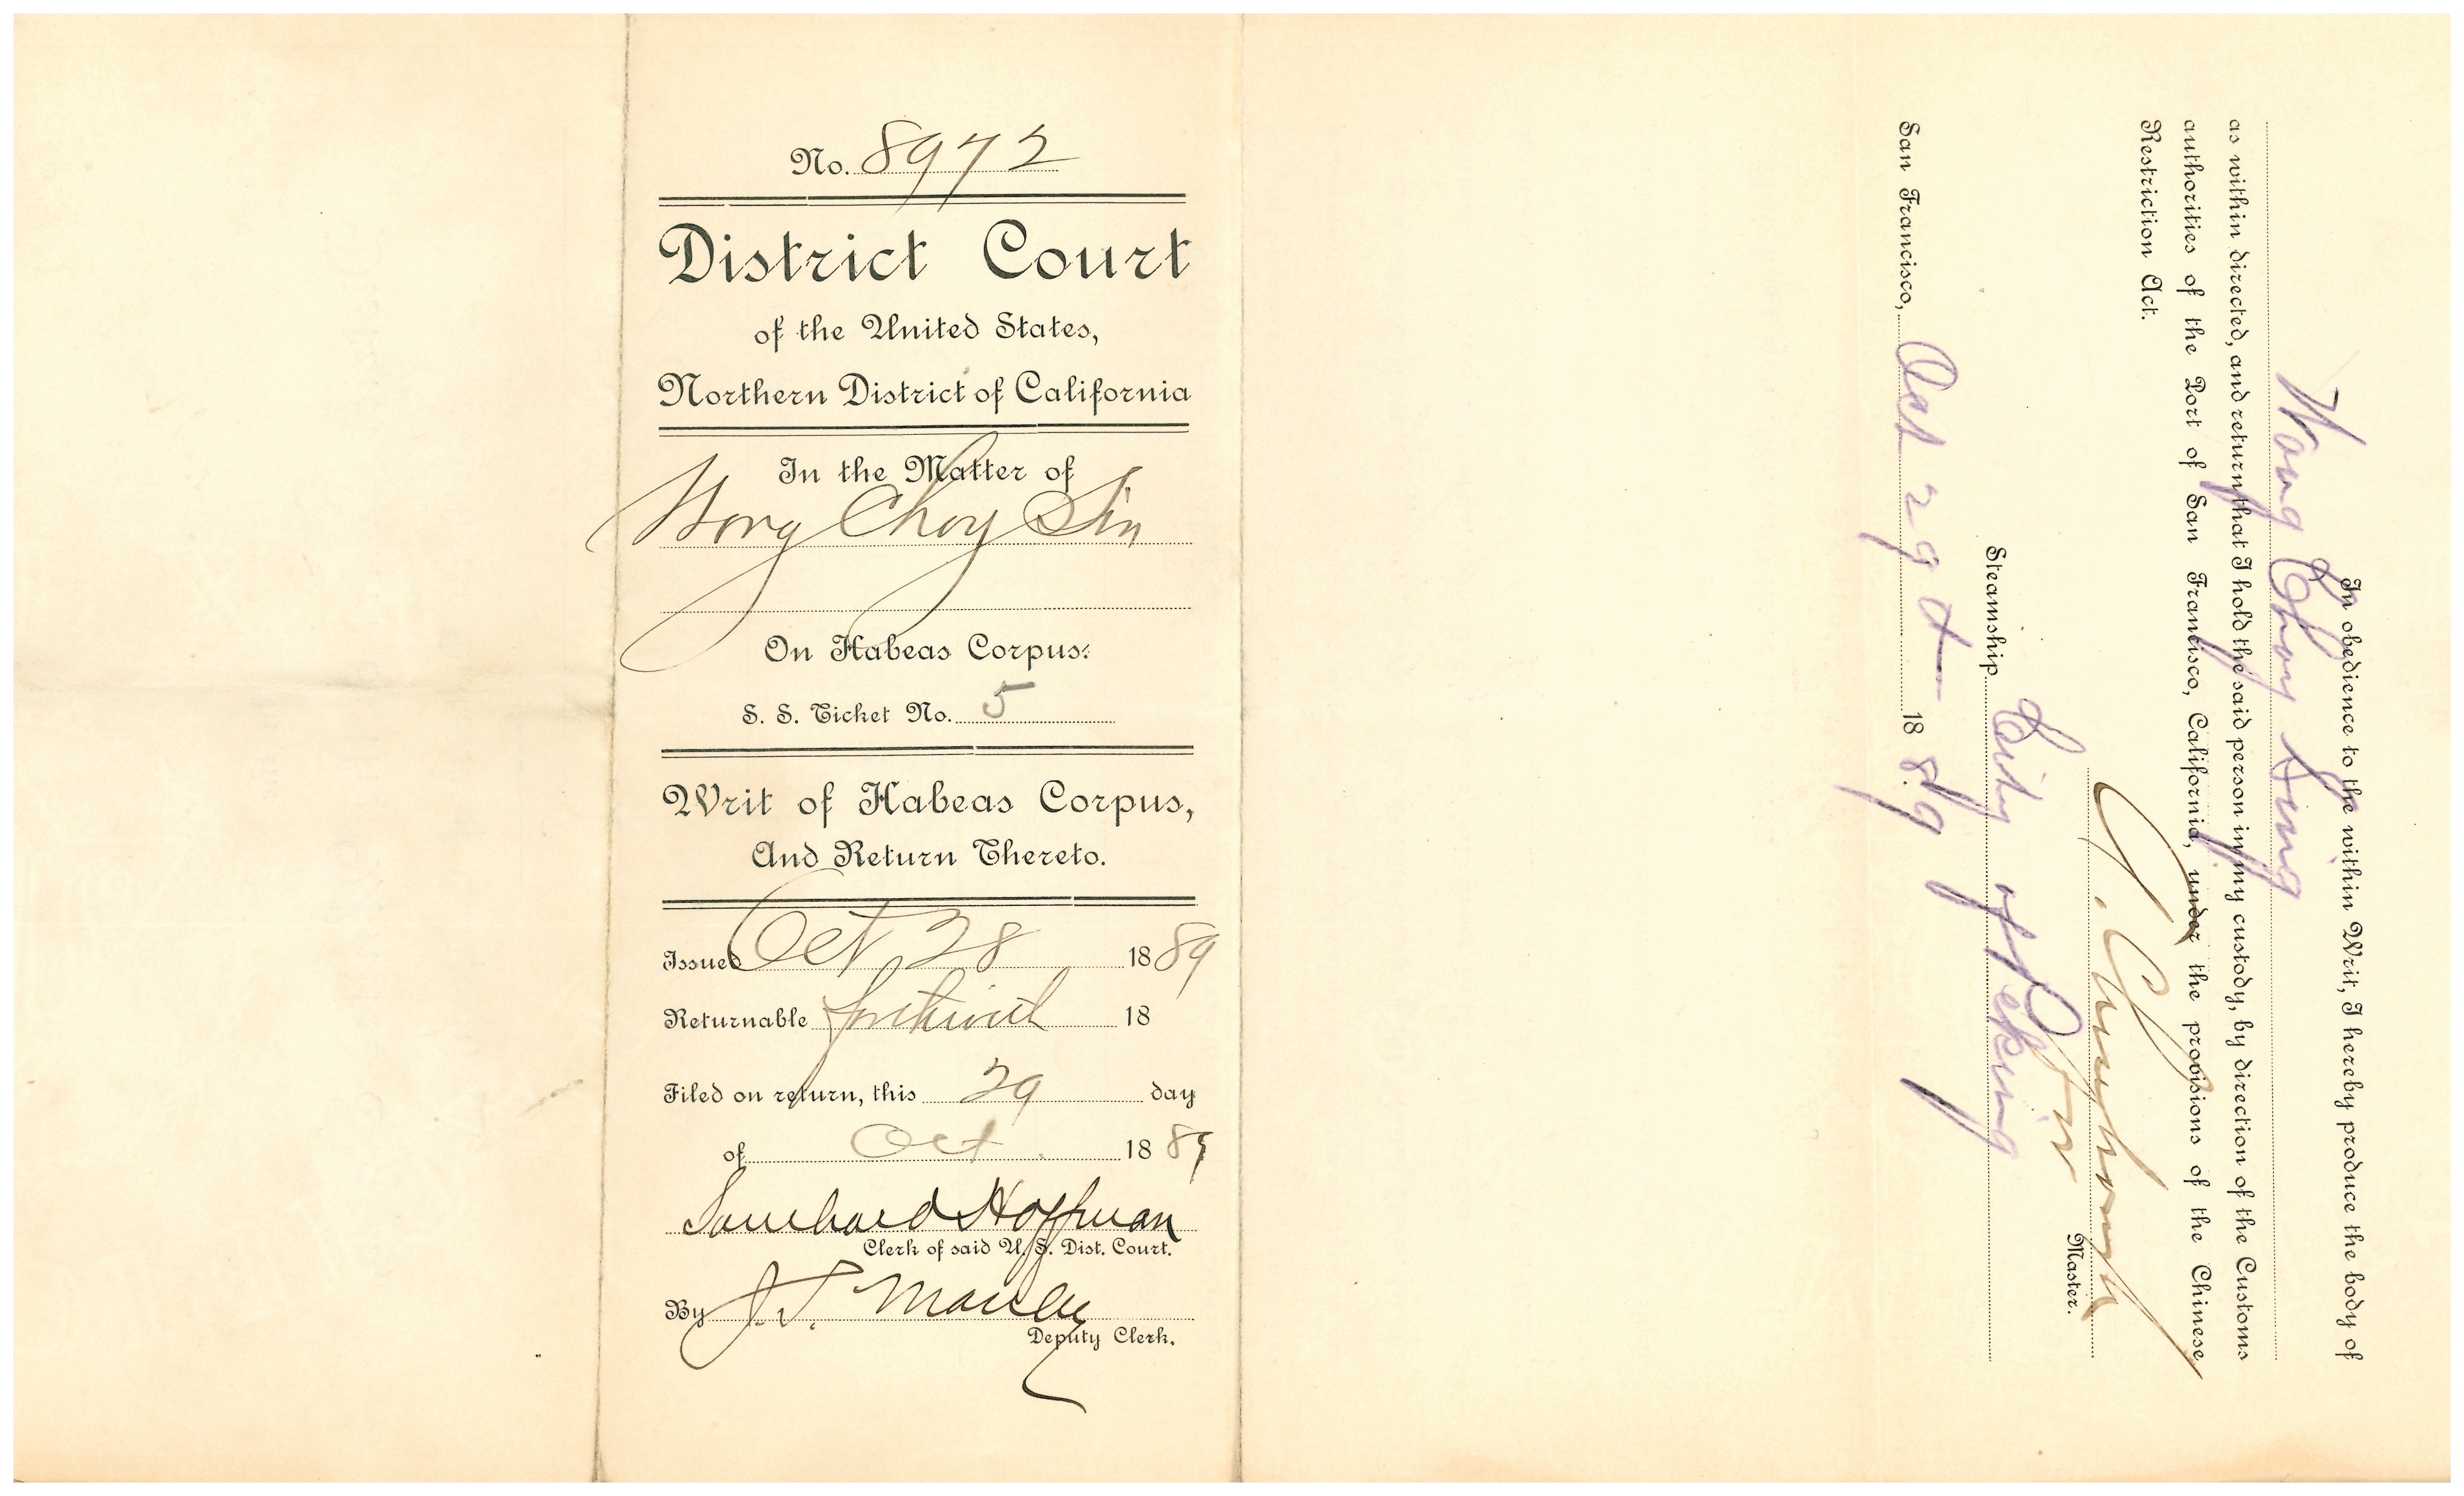 No. 8972
District Court
of the United States,
Northern District of California
In the Matter of
Wong Choy Sin
On Habeas Corpus.
S. S. Ticket No. 5
Writ of Habeas Corpus,
And Return Thereto.
Issued Oct 28 1889
Returnable forthwith 18
Filed on return, this 29 day
of Oct. 1889
Southard Hoffman
Clerk of said U. S. Dist. Court.
By J. S. Manley
Deputy Clerk.
In obedience to the within Writ, I hereby produce the body of
Wong Choy Sing
as within directed, and return that I hold the said person in my custody, by direction of the Customs
authorities of the Port of San Francisco, California, under the provisions of the Chinese
Restriction Act.
Master.
Steamship City of Peking
San Francisco, Oct 29th 1889